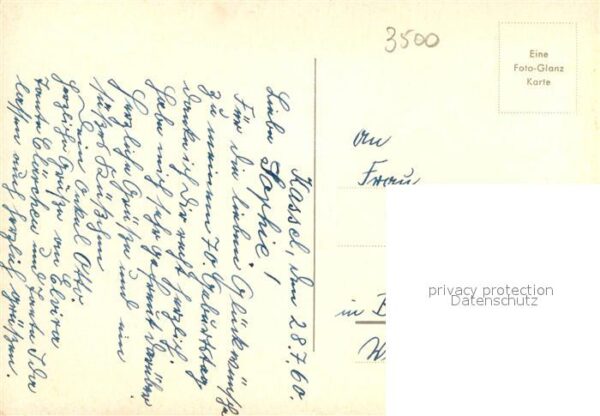 3500
Eine
Foto-Glanz
Karte
Kassel, den 28.7.60.
Liebe Sophie!
Für die lieben Glückwünsche
zu meinem 70. Geburtstag
danke ich Dir recht herzlich.
Habe mich sehr gefreut darüber
Herzliche Grüße und ein
süßes Küßchen
Dein Onkel Otto.
Herzliche Grüße an Elvira
Tante Clärchen und Tante Ida
lassen auch herzlich grüßen.
An
Frau
in B
W
privacy protection
Datenschutz